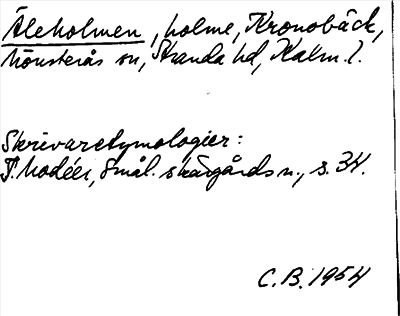 Äleholmen, holme, Kronobäck,
Mönsterås sn, Stranda hd, Kalm. l.
Skrivaretymologier:
T. Modéer, Smål. skärgårds n., s. 34.
C.B. 1954